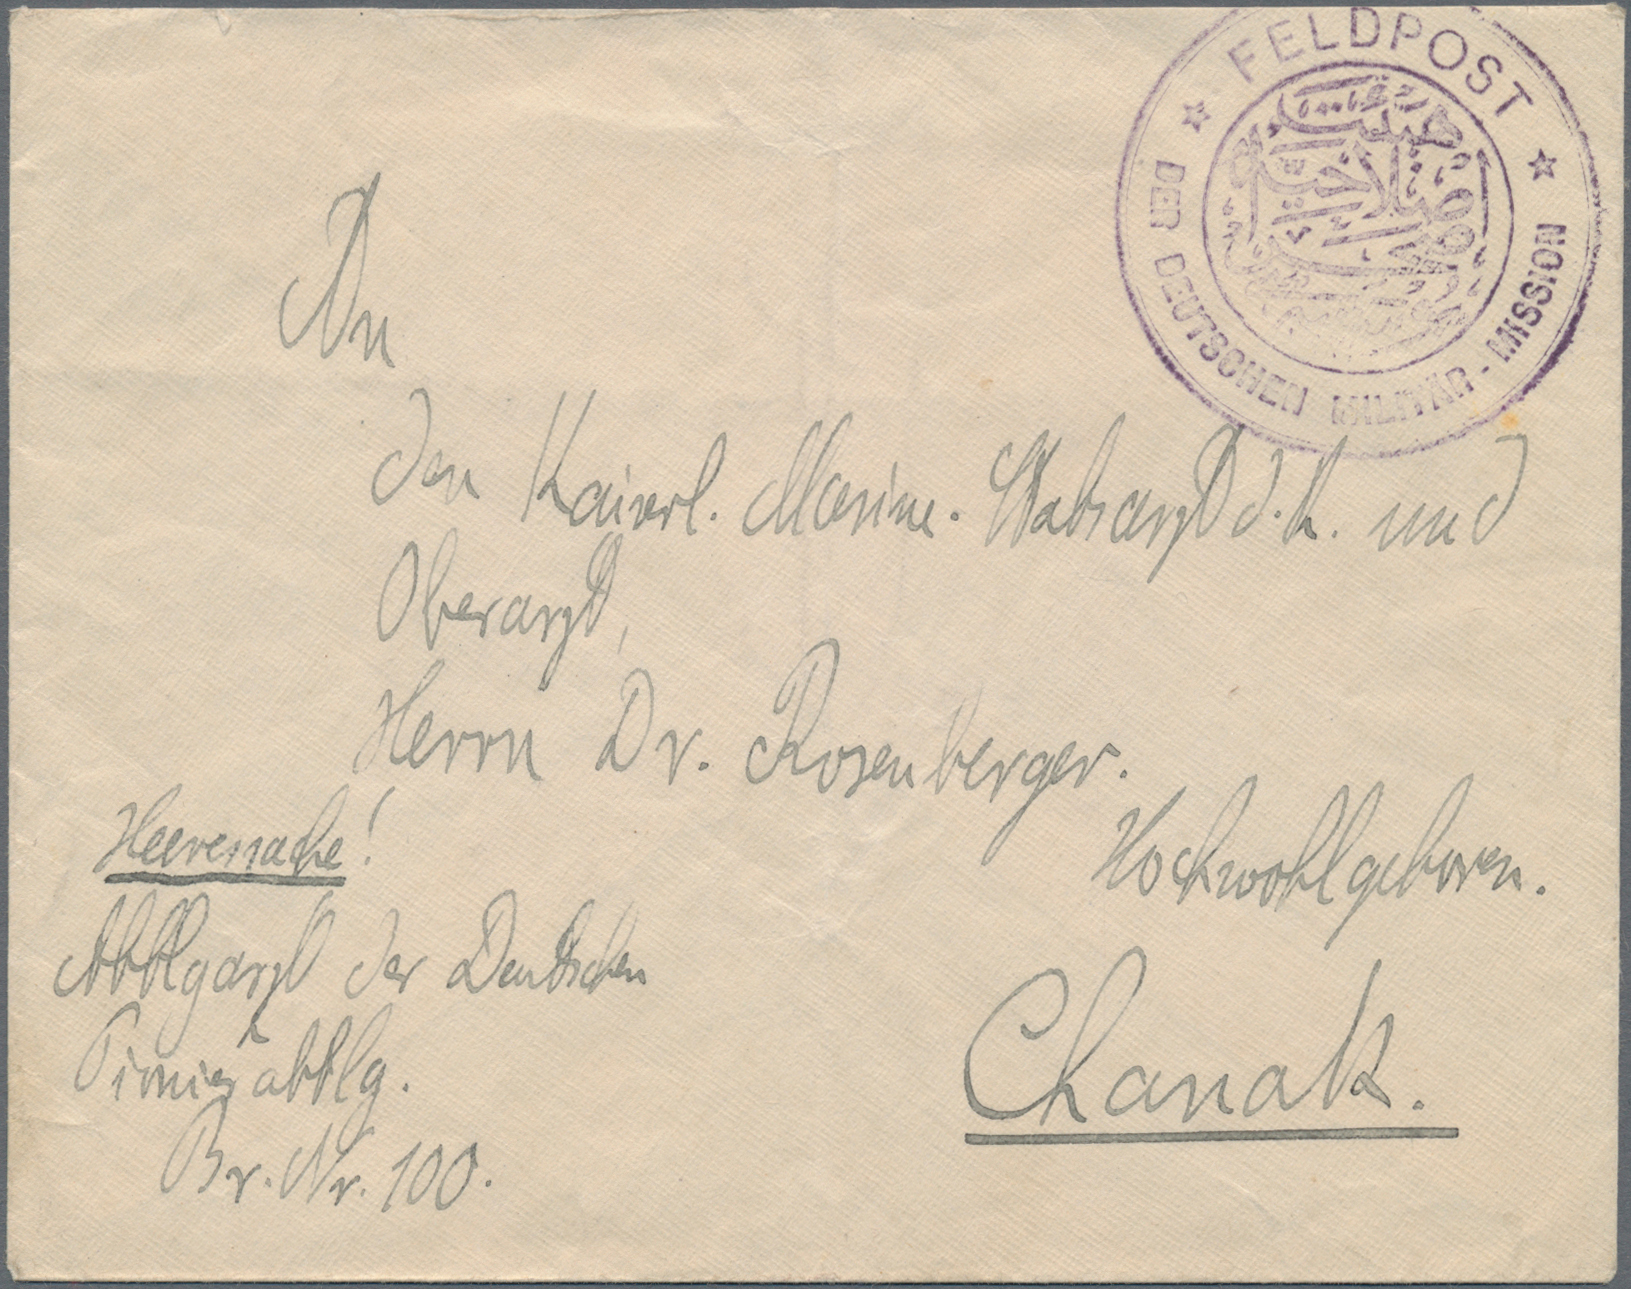 FELDPOST
DER DEUTSCHEN MILITÄR-MISSION
هيئت
اصلاحيه
An
den Kaiserl. Marine. Stabsarzt d. R. und
Oberarzt,
Herrn Dr. Rosenberger.
Hochwohlgeboren.
Heeressache!
Abtlgarzt der Deutschen
Pionierabtlg.
Br. Nr. 100.
Chanak.